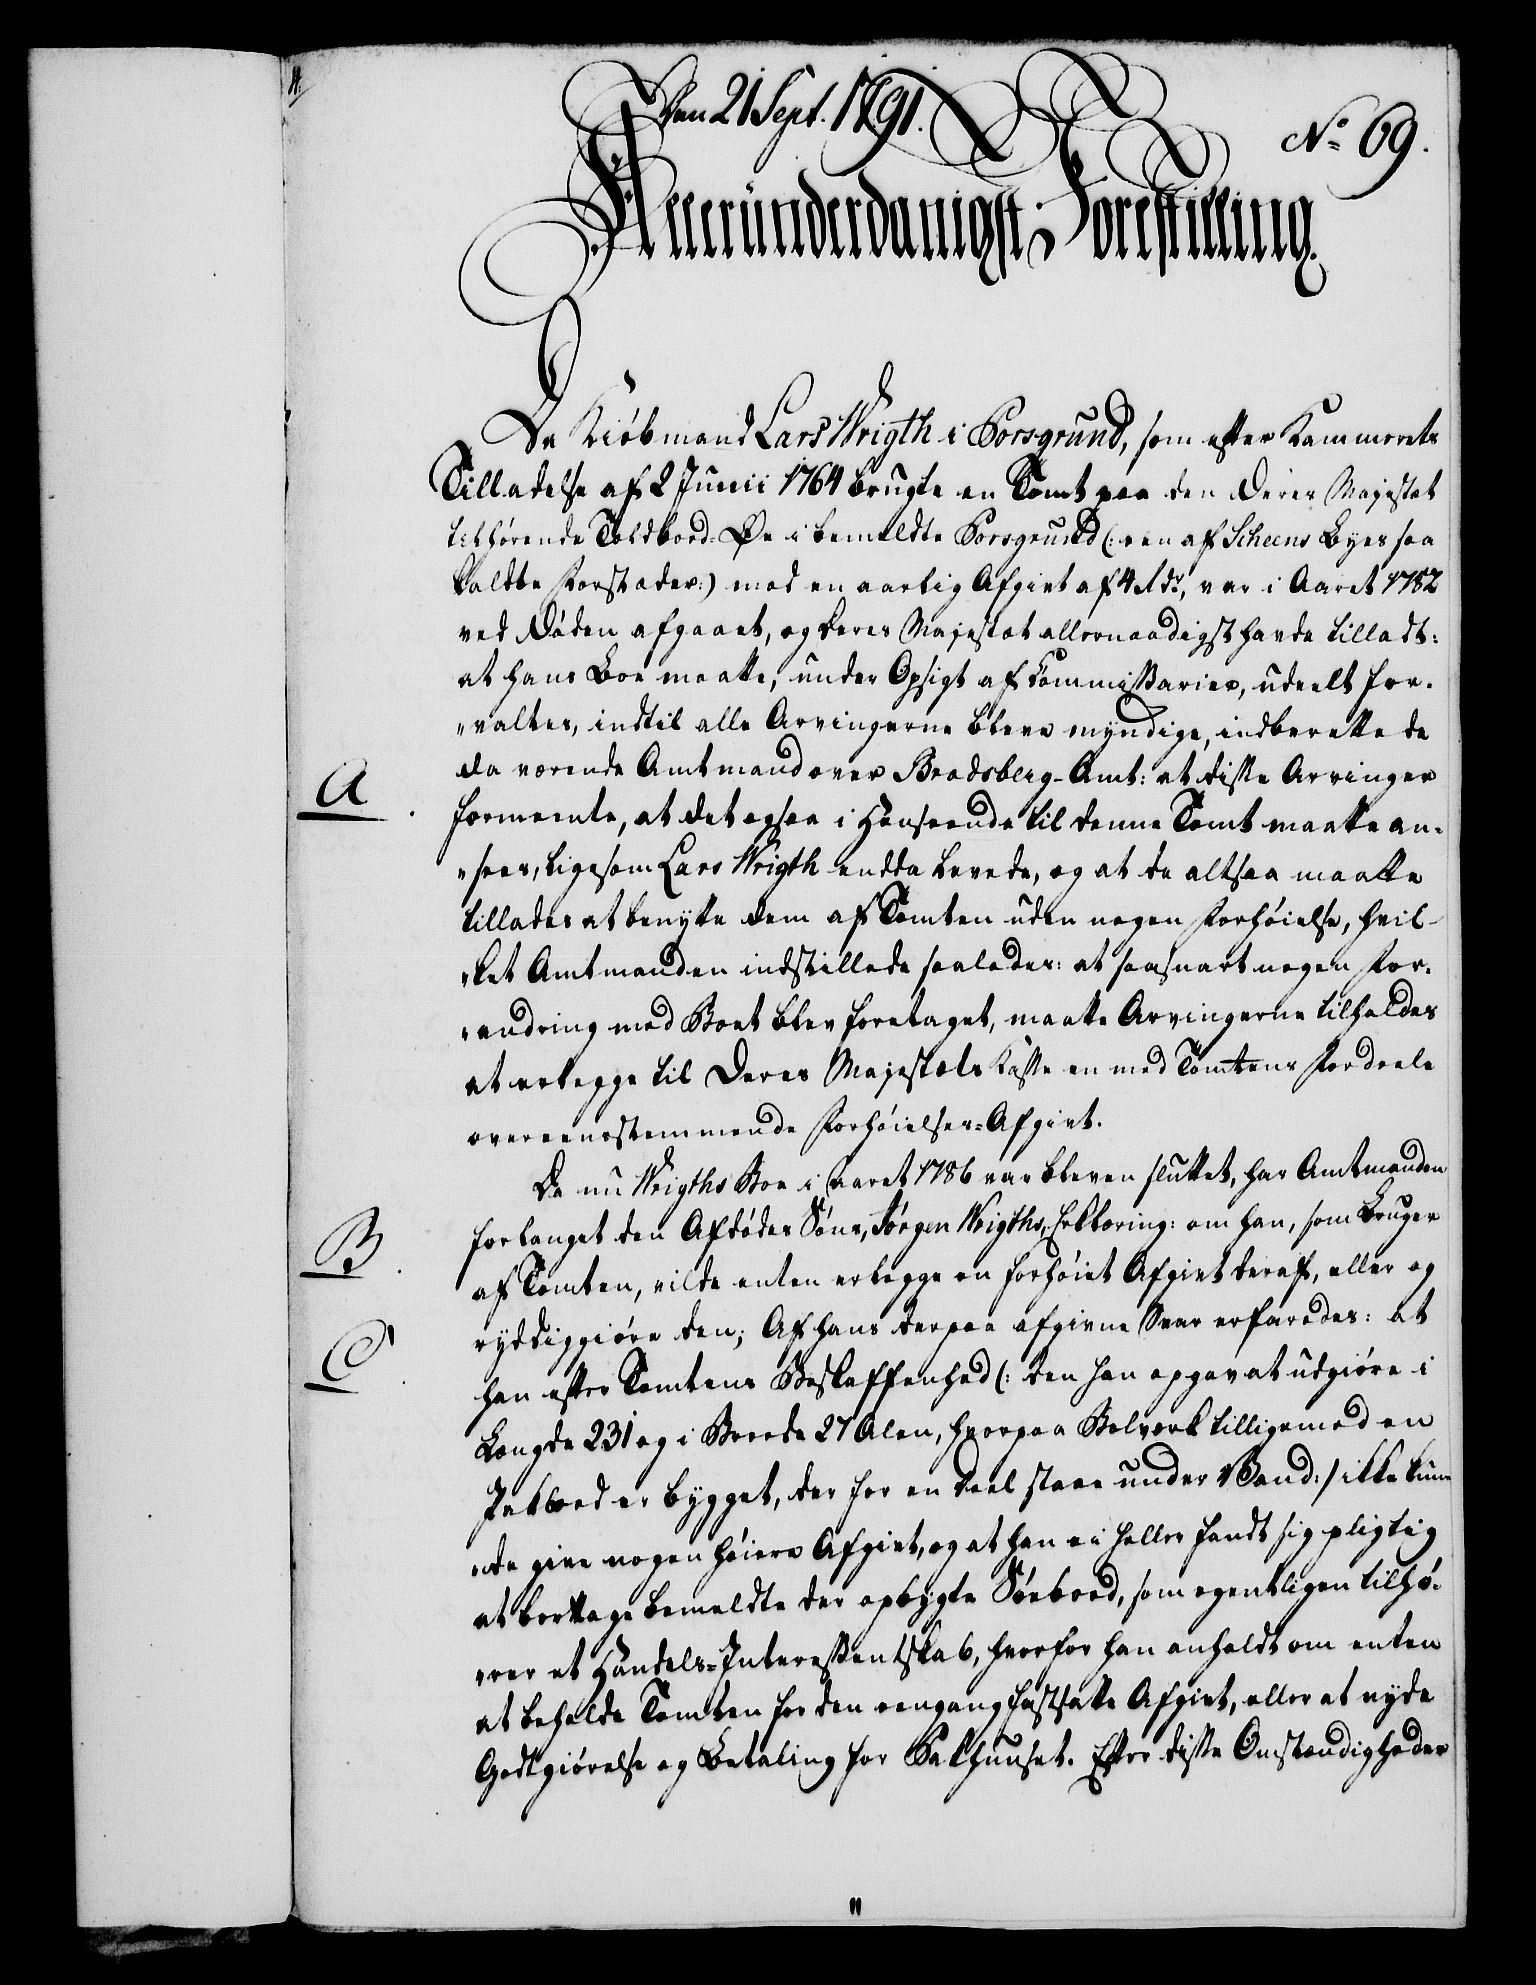 Den 21 Sept. 1791.
No 69.
Allerunderdanigst Forestilling.
Da Kiöbmand Lars Wrigth i Porsgrund, som efter Kammerets
Tilladelse af 2 Junii 1764 brugte en Tomt paa den Deres Majestæt
tilhørende Toldbod-Øe i bemeldte Porsgrund (: een af Scheens Byes saa
kaldte Forstæder:) med en aarlig Afgivt af 4 rdr, var i Aaret 1782
ved Døden afgaaet, og Deres Majestæt allernaadigst havde tilladt:
at hans Boe maatte, under Opsigt af Commissarier, udeelt for-
"valtes, indtil alle Arvingerne bleve myndige, indberettede
da værende Amtmand over Bradsberg-Amt: at disse Arvinger
A
formeente, at det ogsaa i Henseende til denne Tomt maatte an-
"sees, ligesom Lars Wrigth endda levede, og at de altsaa maatte
tillades at benytte dem af Tomten uden nogen Forhøielse, hvil-
"ket Amtmanden indstillede saaledes: at saasnart nogen For-
"andring med Boet blev foretaget, maatte Arvingerne tilholdes
at erlegge til Deres Majestæts Kasse en med Tomtens Fordeele
overeensstemmende Forhøielses-Afgivt.
Da nu Wrigths Boe i Aaret 1786 var bleven sluttet, har Amtmanden
B
forlanget den Afdødes Søns, Jørgen Wrigths, Erklæring: om han, som Bruger
af Tomten, vilde enten erlegge en forhøiet Afgivt deraf, eller og
ryddiggiøre den; Af hans derpaa afgivne Svar erfaredes: at
C
han efter Tomtens Beskaffenhed (: den han opgav at udgiøre i
Længde 231 og i Brede 27 Alen, hvorpaa Bolværk tilligemed en
Pakboed er bygget, der for en Deel staae under Vand:) ikke kun-
"de give nogen høiere Afgivt, og at han ei heller fandt sig pligtig
at borttage bemeldte der opbygte Søeboed, som egentligen tilhø-
"rer et Handels-Interessentskab, hvorfor han anholdt om enten
at beholde Tomten for den eengang fastsatte Afgivt, eller at nyde
Godtgiørelse og Betaling for Pakhuuset. Efter disse Omstændigheder